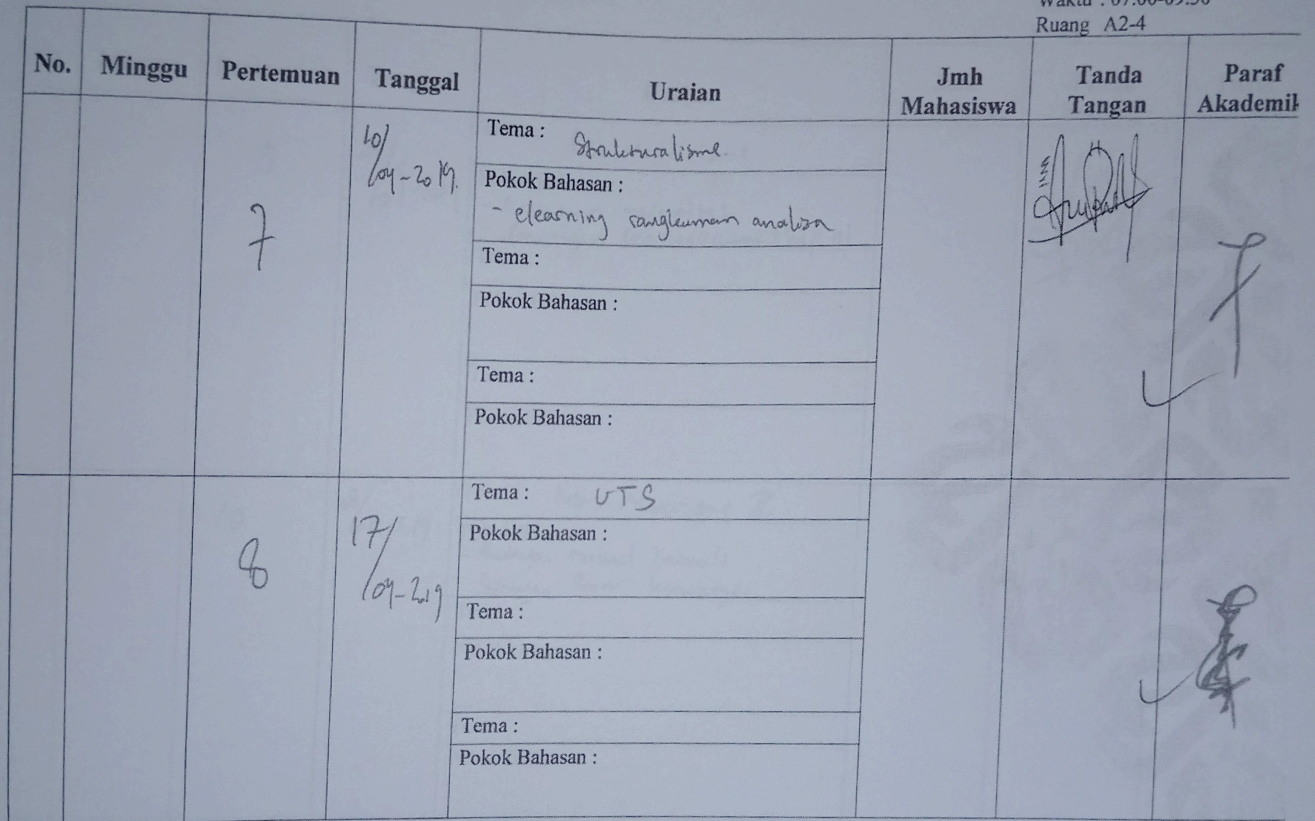 Waktu : 07.00-09.30
Ruang A2-4
No. Minggu Pertemuan Tanggal Uraian Jmh Mahasiswa Tanda Tangan Paraf Akademik
7
10/
/04-2019.
Tema : Strukturalisme
Pokok Bahasan :
- elearning rangkuman analisa
Tema :
Pokok Bahasan :
Tema :
Pokok Bahasan :
8
17/
/04-2019
Tema : UTS
Pokok Bahasan :
Tema :
Pokok Bahasan :
Tema :
Pokok Bahasan :